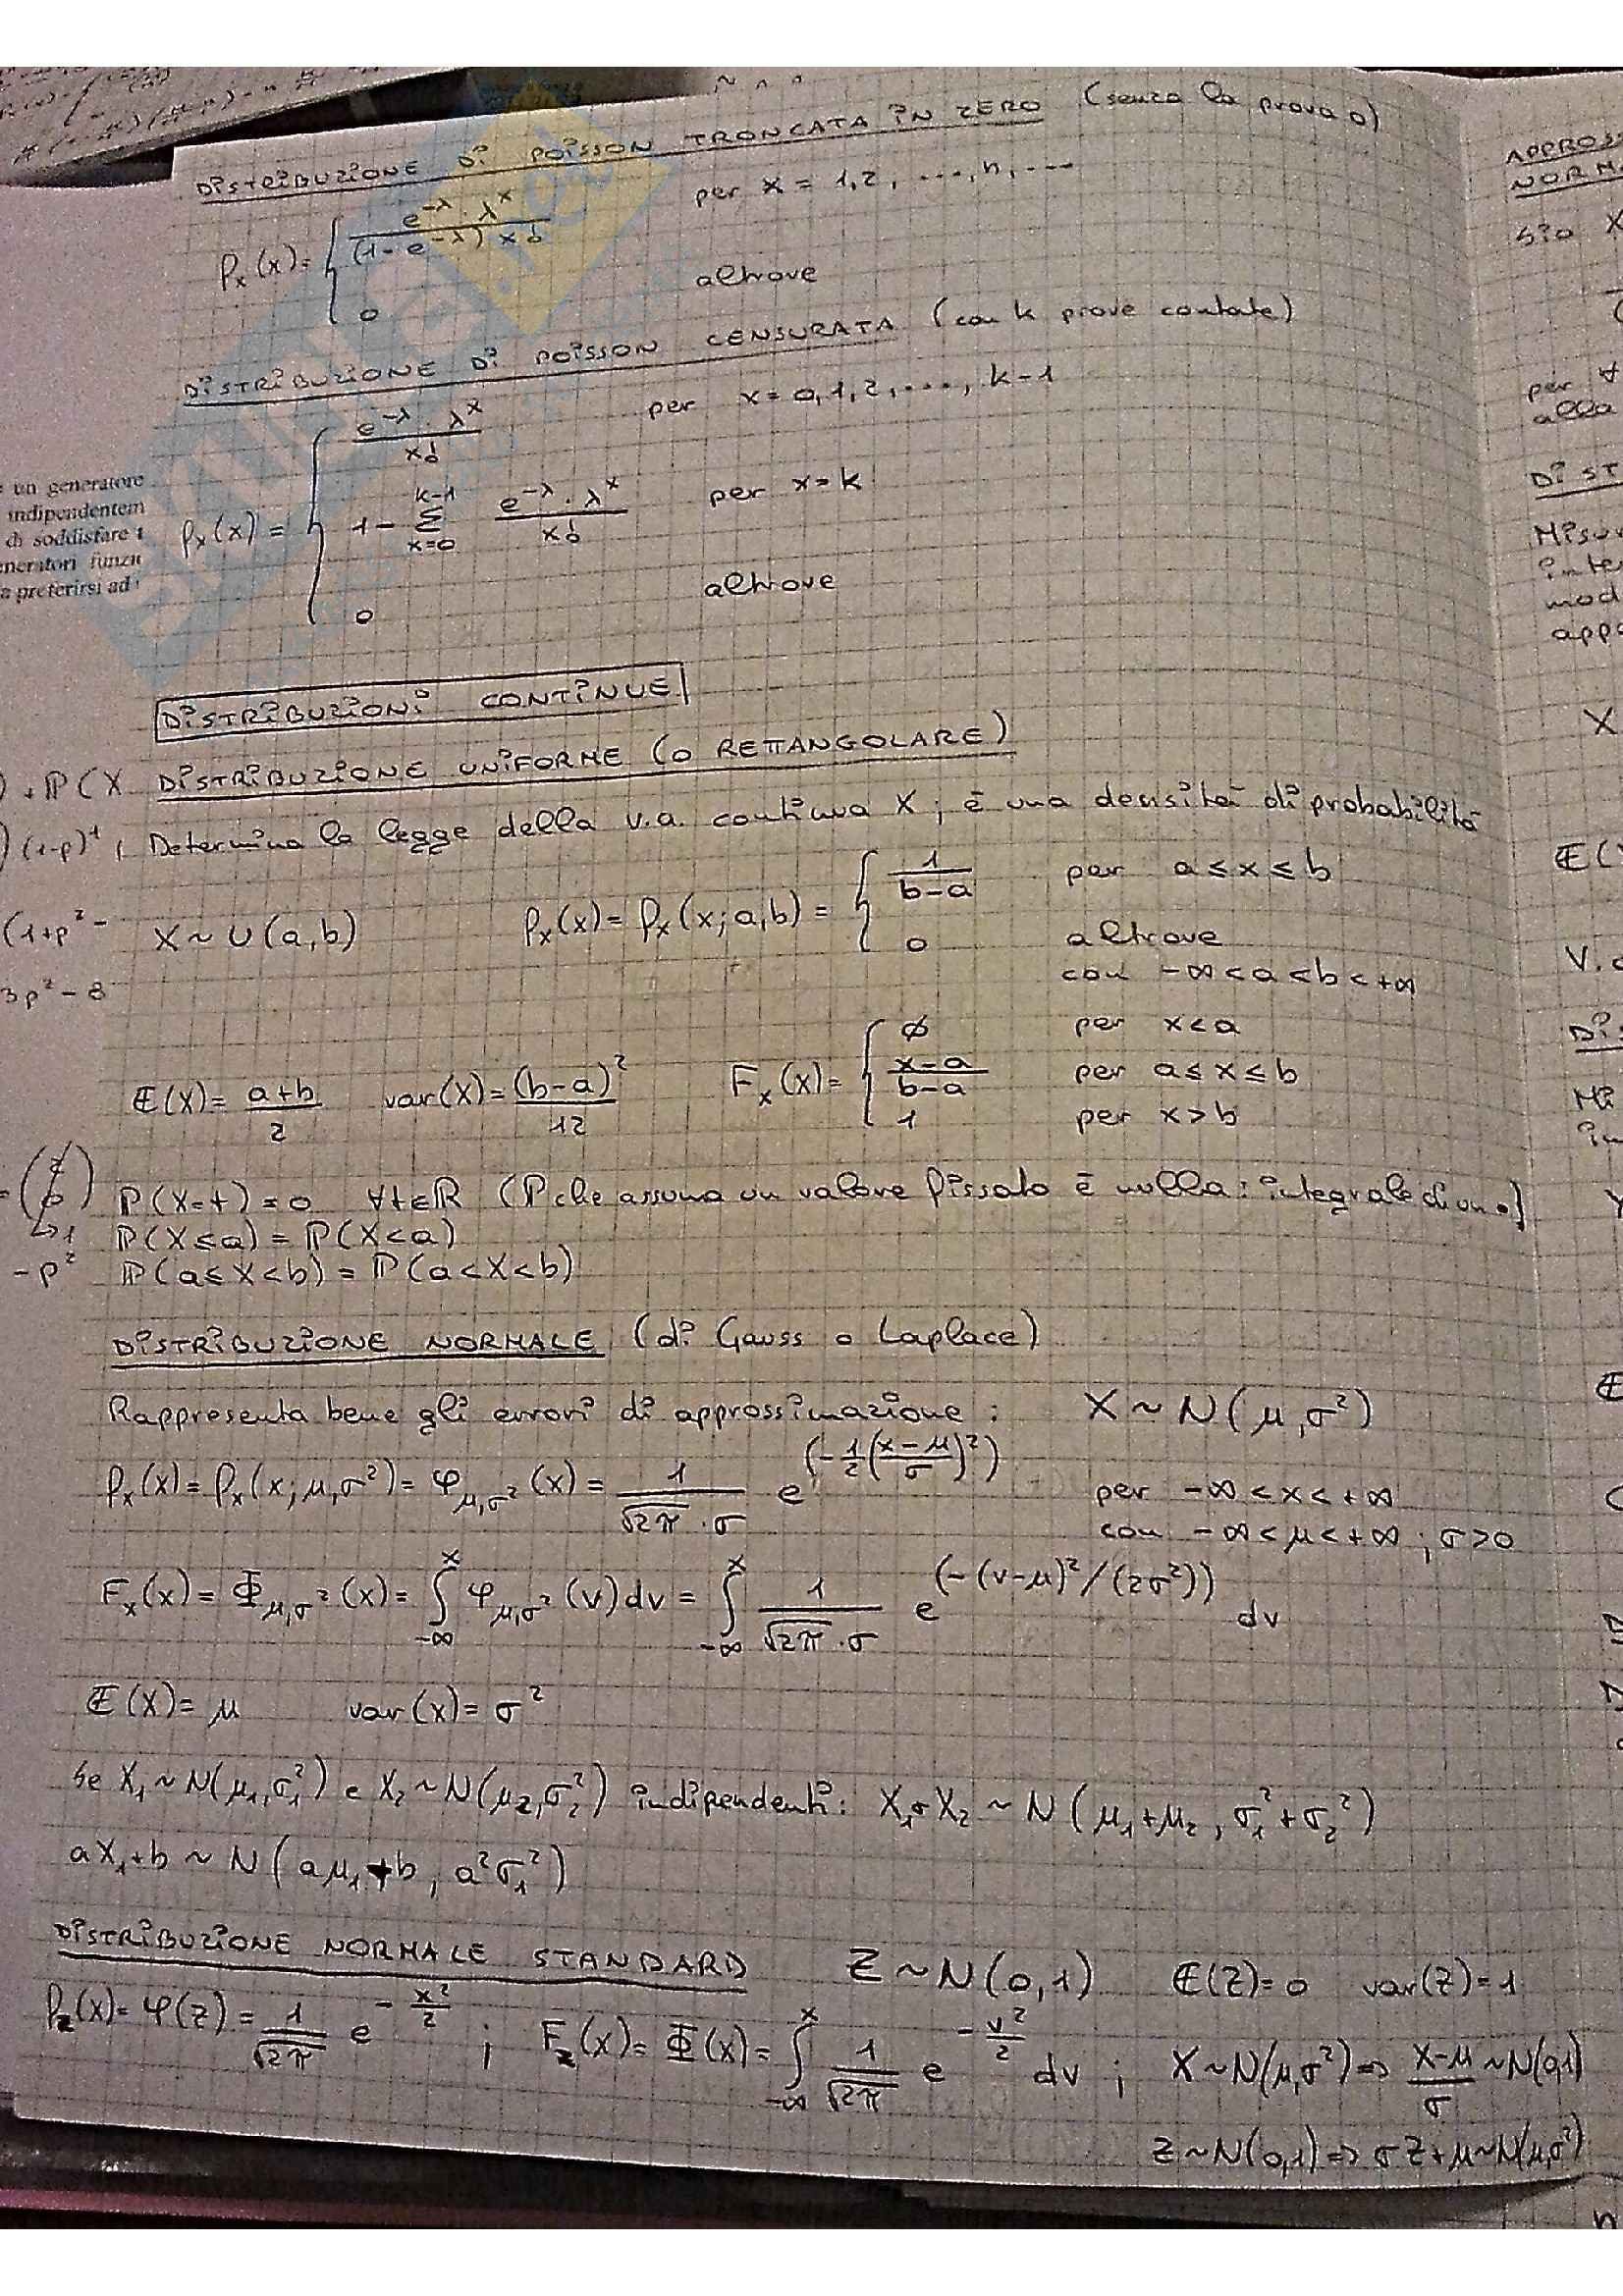 DISTRIBUZIONE DI POISSON TRONCATA IN ZERO (senza la prova 0)
Px(x) = { e^-λ · λ^x / (1 - e^-λ) x! per x = 1, 2, ..., n, ...
0 altrove
DISTRIBUZIONE DI POISSON CENSURATA (con k prove contate)
Px(x) = { e^-λ · λ^x / x! per x = 0, 1, 2, ..., k-1
1 - Σ_{x=0}^{k-1} e^-λ · λ^x / x! per x = k
0 altrove
DISTRIBUZIONI CONTINUE
DISTRIBUZIONE UNIFORME (O RETTANGOLARE)
Determina la legge della v.a. continua X; è una densità di probabilità
X ~ U(a,b) Px(x) = Px(x; a,b) = { 1/(b-a) per a ≤ x ≤ b
0 altrove
con -∞ < a < b < +∞
E(X) = (a+b)/2 var(X) = (b-a)²/12 Fx(x) = { ∅ per x < a
(x-a)/(b-a) per a ≤ x ≤ b
1 per x > b
P(X=t) = 0 ∀t∈R (P che assuma un valore fissato è nulla: integrale di un •)
P(X≤a) = P(X<a)
P(a≤X<b) = P(a<X<b)
DISTRIBUZIONE NORMALE (di Gauss o Laplace)
Rappresenta bene gli errori di approssimazione: X ~ N(μ,σ²)
Px(x) = Px(x; μ,σ²) = φ_{μ,σ²}(x) = 1/(√2π · σ) e^(-1/2((x-μ)/σ)²) per -∞ < x < +∞
con -∞ < μ < +∞; σ>0
Fx(x) = Φ_{μ,σ²}(x) = ∫_{-∞}^{x} φ_{μ,σ²}(v)dv = ∫_{-∞}^{x} 1/(√2π · σ) e^(-(v-μ)²/(2σ²)) dv
E(X) = μ var(x) = σ²
Se X₁ ~ N(μ₁,σ₁²) e X₂ ~ N(μ₂,σ₂²) indipendenti: X₁+X₂ ~ N(μ₁+μ₂, σ₁²+σ₂²)
aX₁+b ~ N(aμ₁+b, a²σ₁²)
DISTRIBUZIONE NORMALE STANDARD Z ~ N(0,1) E(Z)=0 var(Z)=1
Pz(x) = φ(z) = 1/√2π e^(-x²/2); Fz(x) = Φ(x) = ∫_{-∞}^{x} 1/√2π e^(-v²/2) dv; X~N(μ,σ²) ⇒ (X-μ)/σ ~ N(0,1)
Z~N(0,1) ⇒ σZ+μ ~ N(μ,σ²)
un generatore
indipendentem
di soddisfare
neratori funzi
a preferirsi ad
+ P(X
(1-p)¹
(1+p² -
3p² - 8
-p²
APPROS
NORM
Sia X
per ∀
alla
DIST
Misur
inter
mod
appa
X
E(
V.
Di
Mi
SKUOLA
.net